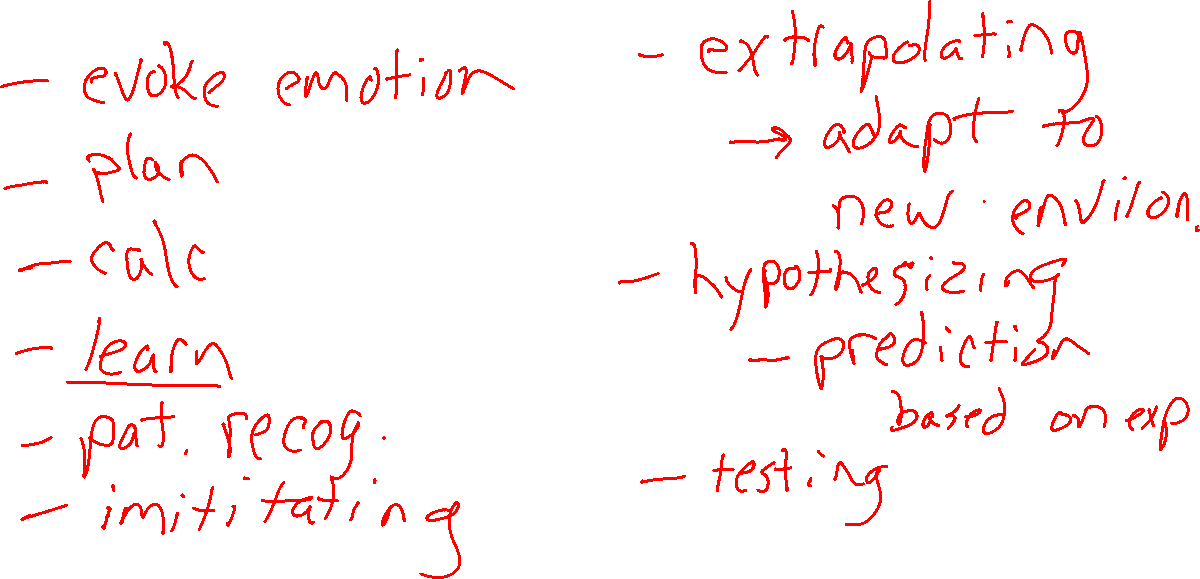 - evoke emotion
- plan
- calc
- learn
- pat. recog.
- imititating
- extrapolating
→ adapt to
new environ.
- hypothesizing
- prediction
based on exp
- testing